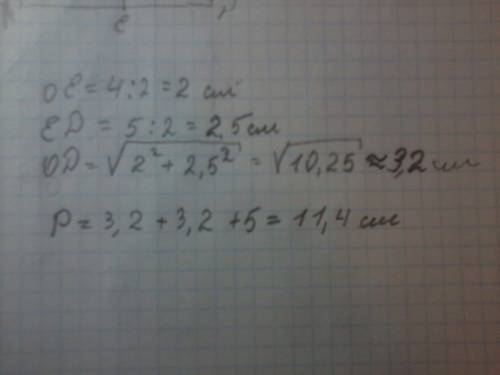 e
OE = 4 : 2 = 2 см
ED = 5 : 2 = 2,5 см
OD = √2² + 2,5² = √10,25 ≈ 3,2 см
P = 3,2 + 3,2 + 5 = 11,4 см